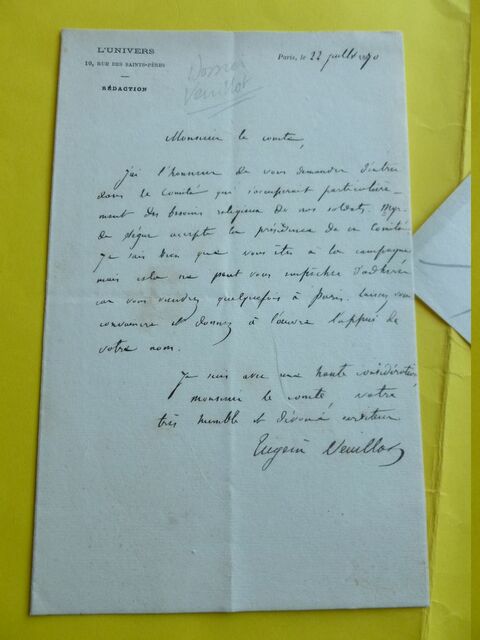 L'UNIVERS
10, RUE DES SAINTS-PÈRES
RÉDACTION
Dossier
Veuillot
Paris, le 22 juillet 1870
Monsieur le comte,
j'ai l'honneur de vous demander d'entrer
dans le Comité qui s'occuperait particulière-
ment des besoins religieux de nos soldats. Mgr
de Ségur accepte la présidence de ce Comité.
Je sais bien que vous êtes à la campagne
mais cela ne peut vous empêcher d'adhérer
car vous viendrez quelquefois à Paris. Laissez vous
convaincre et donnez à l'œuvre l'appui de
votre nom.
Je suis avec une haute considération,
monsieur le comte, votre
très humble et dévoué serviteur
Eugène Veuillot